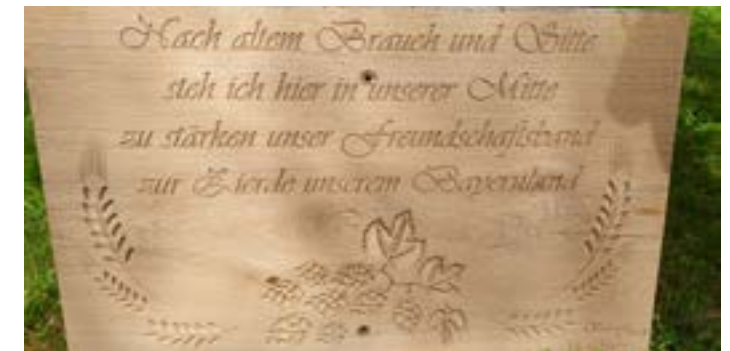 Nach altem Brauch und Sitte
steh ich hier in unserer Mitte
zu stärken unser Freundschaftsband
zur Zierde unserem Bayernland